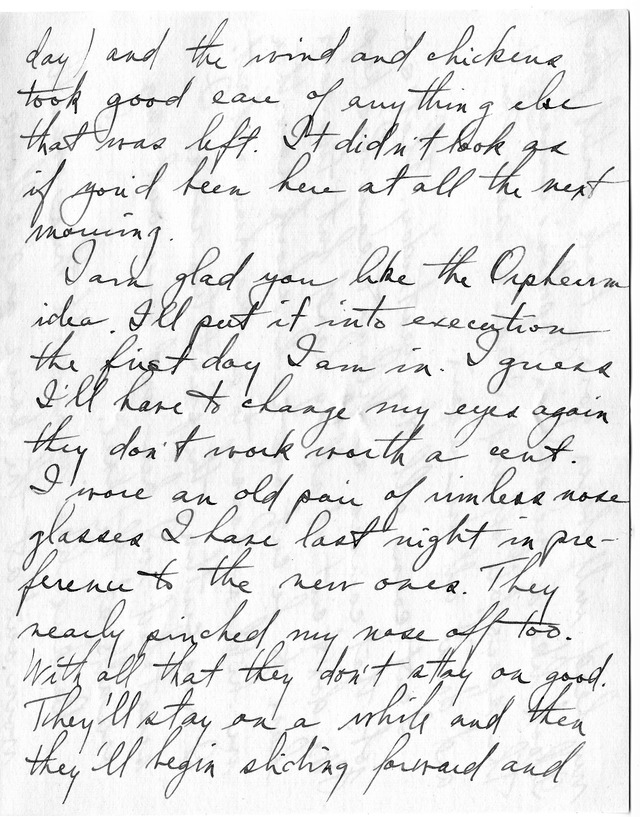 day) and the wind and chickens
took good care of anything else
that was left. It didn't look as
if you'd been here at all the next
morning.
I am glad you like the Orpheum
idea. I'll put it into execution
the first day I am in. I guess
I'll have to change my eyes again
they don't work worth a cent.
I wore an old pair of rimless nose
glasses I have last night in pre-
ference to the new ones. They
nearly pinched my nose off too.
With all that they don't stay on good.
They'll stay on a while and then
they'll begin sliding forward and